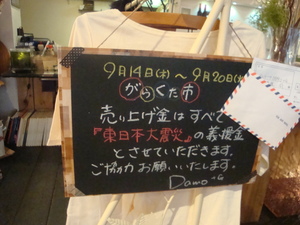 9月14日(水)〜9月20日(火)
がらくた市
売り上げ金はすべて
『東日本大震災』の義援金
とさせていただきます。
ご協力お願いいたします。
Damo